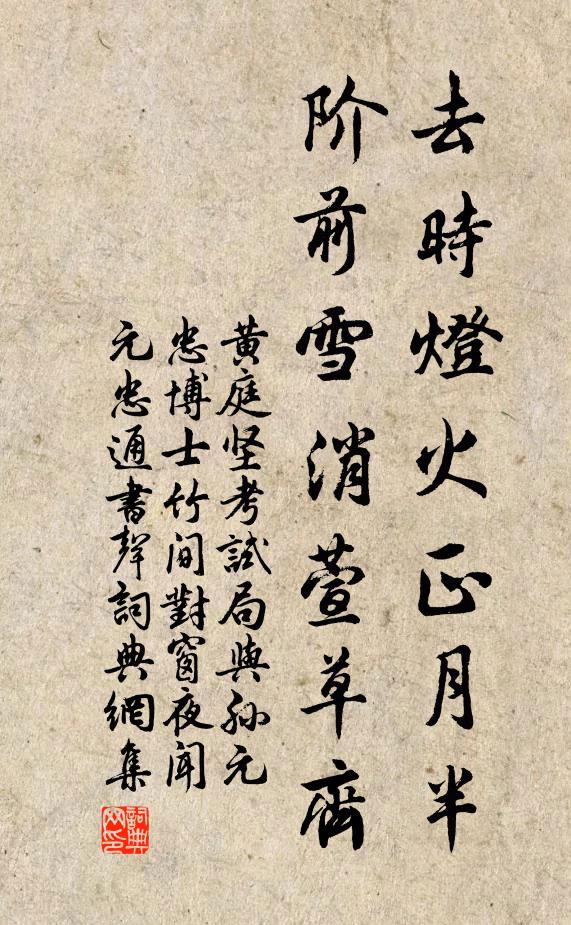 去時燈火正月半
阶前雪消萱草齊
黄庭坚考試局與孫元
忠博士竹间對窗夜闻
元忠通書聲詞典網集
詞典
网印